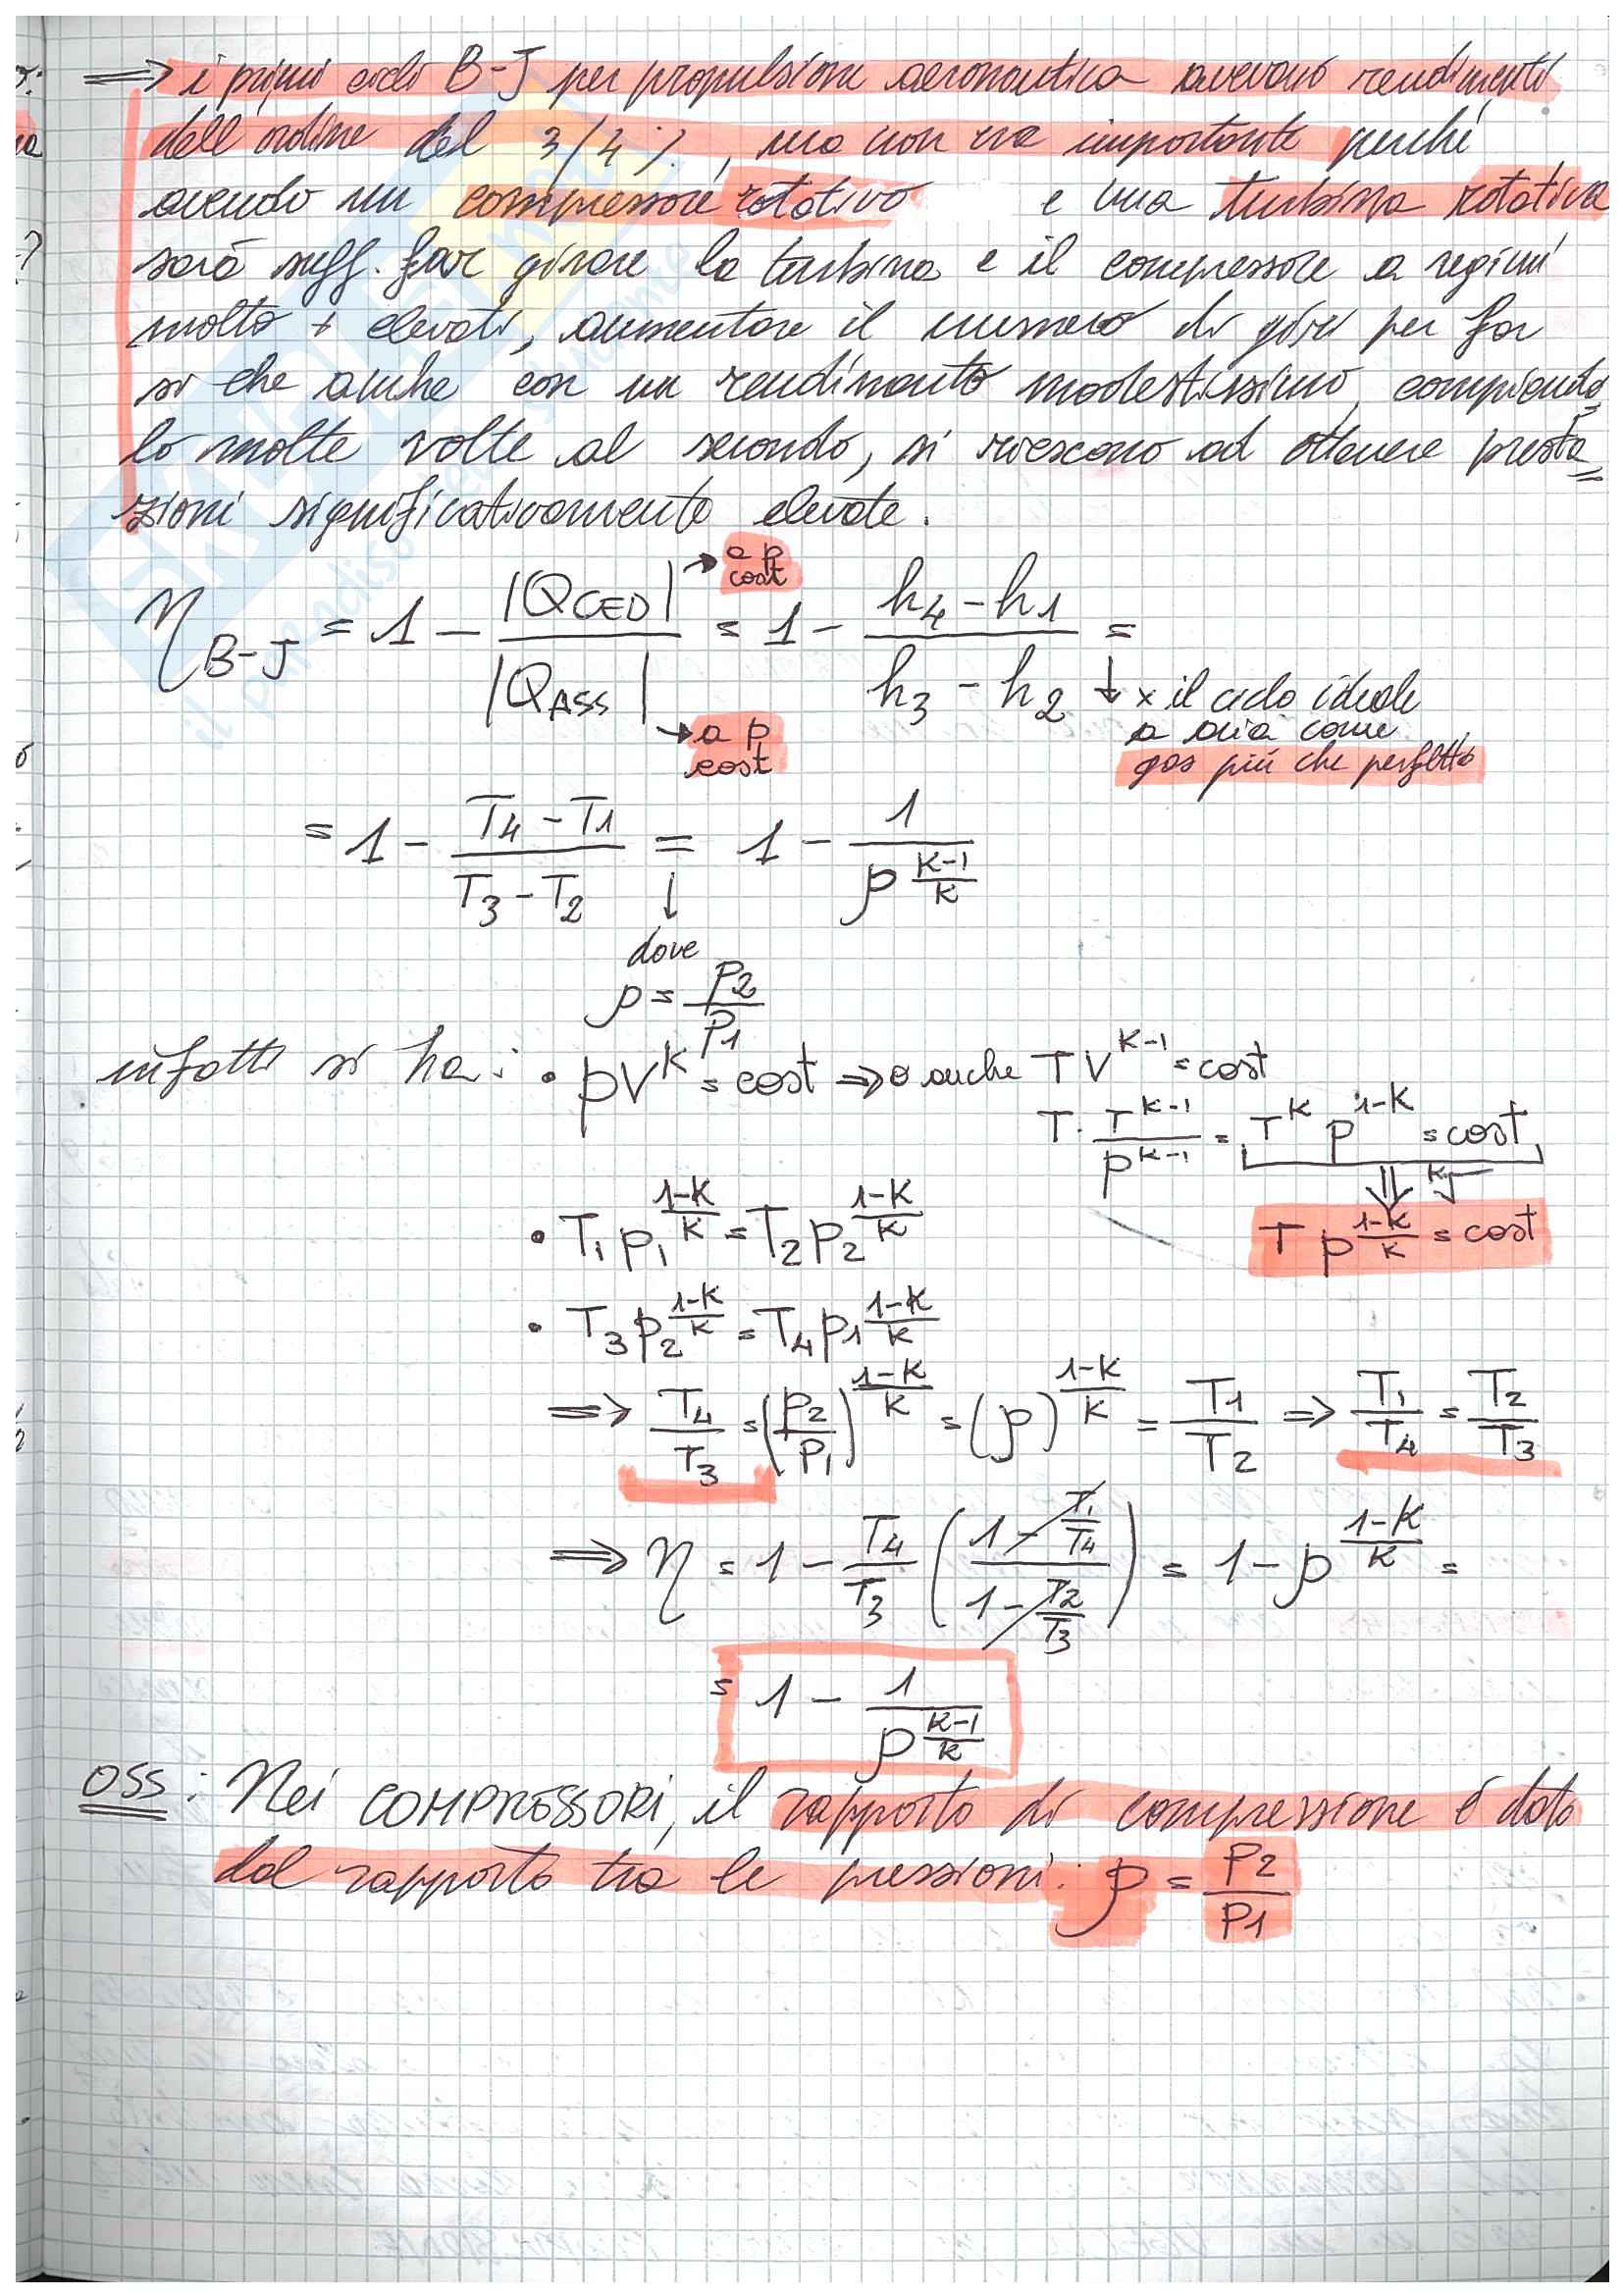 ⇒ i primi cicli B-J per propulsione aeronautica avevano rendimenti
dell'ordine del 3/4 %, ma non era importante perché
avendo un compressore rotativo e una turbina rotativa
sarà suff. far girare la turbina e il compressore a regimi
molto + elevati, aumentare il numero di giri per far
sì che anche con un rendimento modestissimo, compiendo
lo molte volte al secondo, si riescono ad ottenere presta=
zioni significativamente elevate.
η B-J = 1 - |QCED| / |QASS| = 1 - (h4 - h1) / (h3 - h2) =
→ a p cost
→ a p cost
↓ x il ciclo ideale
a aria come
gas più che perfetto
= 1 - (T4 - T1) / (T3 - T2) = 1 - 1 / ρ^((K-1)/K)
↓
dove
ρ = P2 / P1
infatti si ha: • pV^K = cost ⇒ o anche TV^(K-1) = cost
T · T^(K-1) / P^(K-1) = T^K P^(1-K) = cost
⇓ K√
T p^((1-K)/K) = cost
• T1 p1^((1-K)/K) = T2 p2^((1-K)/K)
• T3 p2^((1-K)/K) = T4 p1^((1-K)/K)
⇒ T4/T3 = (P2/P1)^((1-K)/K) = (ρ)^((1-K)/K) = T1/T2 ⇒ T1/T4 = T2/T3
⇒ η = 1 - T4/T3 ((1 - T1/T4) / (1 - T2/T3)) = 1 - ρ^((1-K)/K) =
= 1 - 1 / ρ^((K-1)/K)
OSS: Nei COMPRESSORI, il rapporto di compressione è dato
dal rapporto tra le pressioni: ρ = P2 / P1